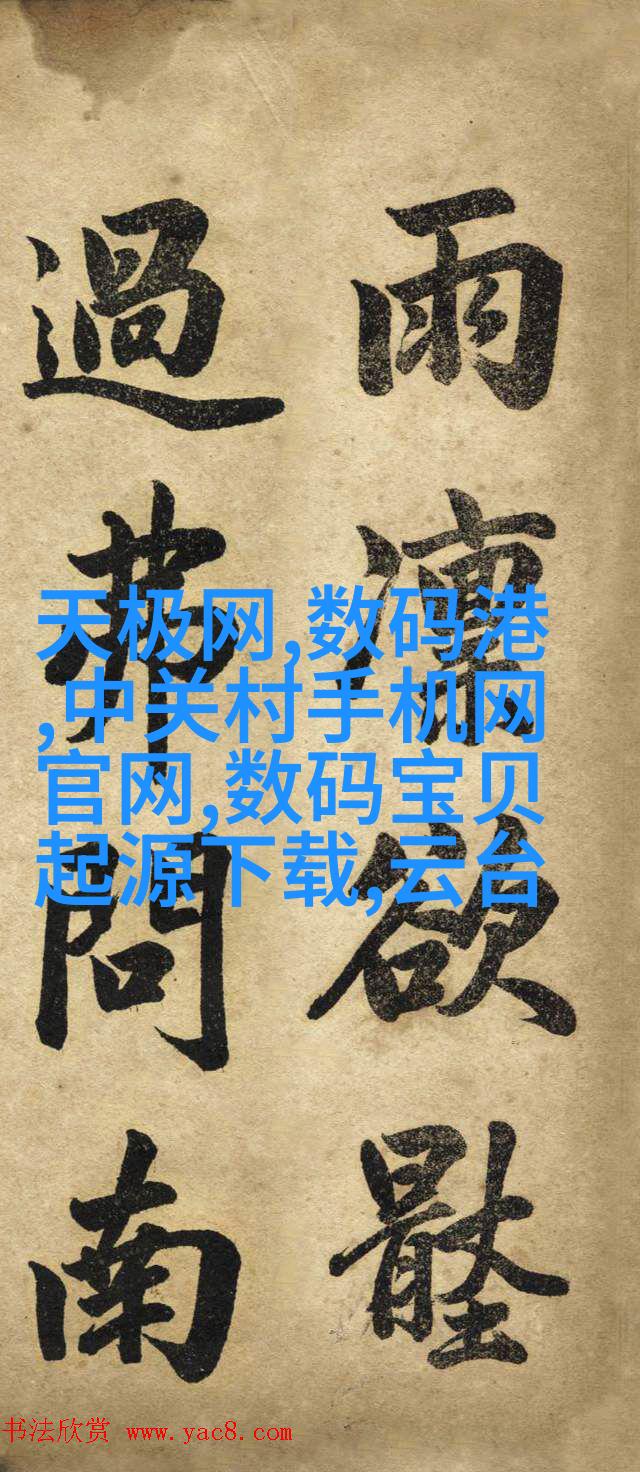 雨欲
過問南
天极网,数码港
,中关村手机网
官网,数码宝贝
起源下载,云台
书法欣赏 www.yac8.com